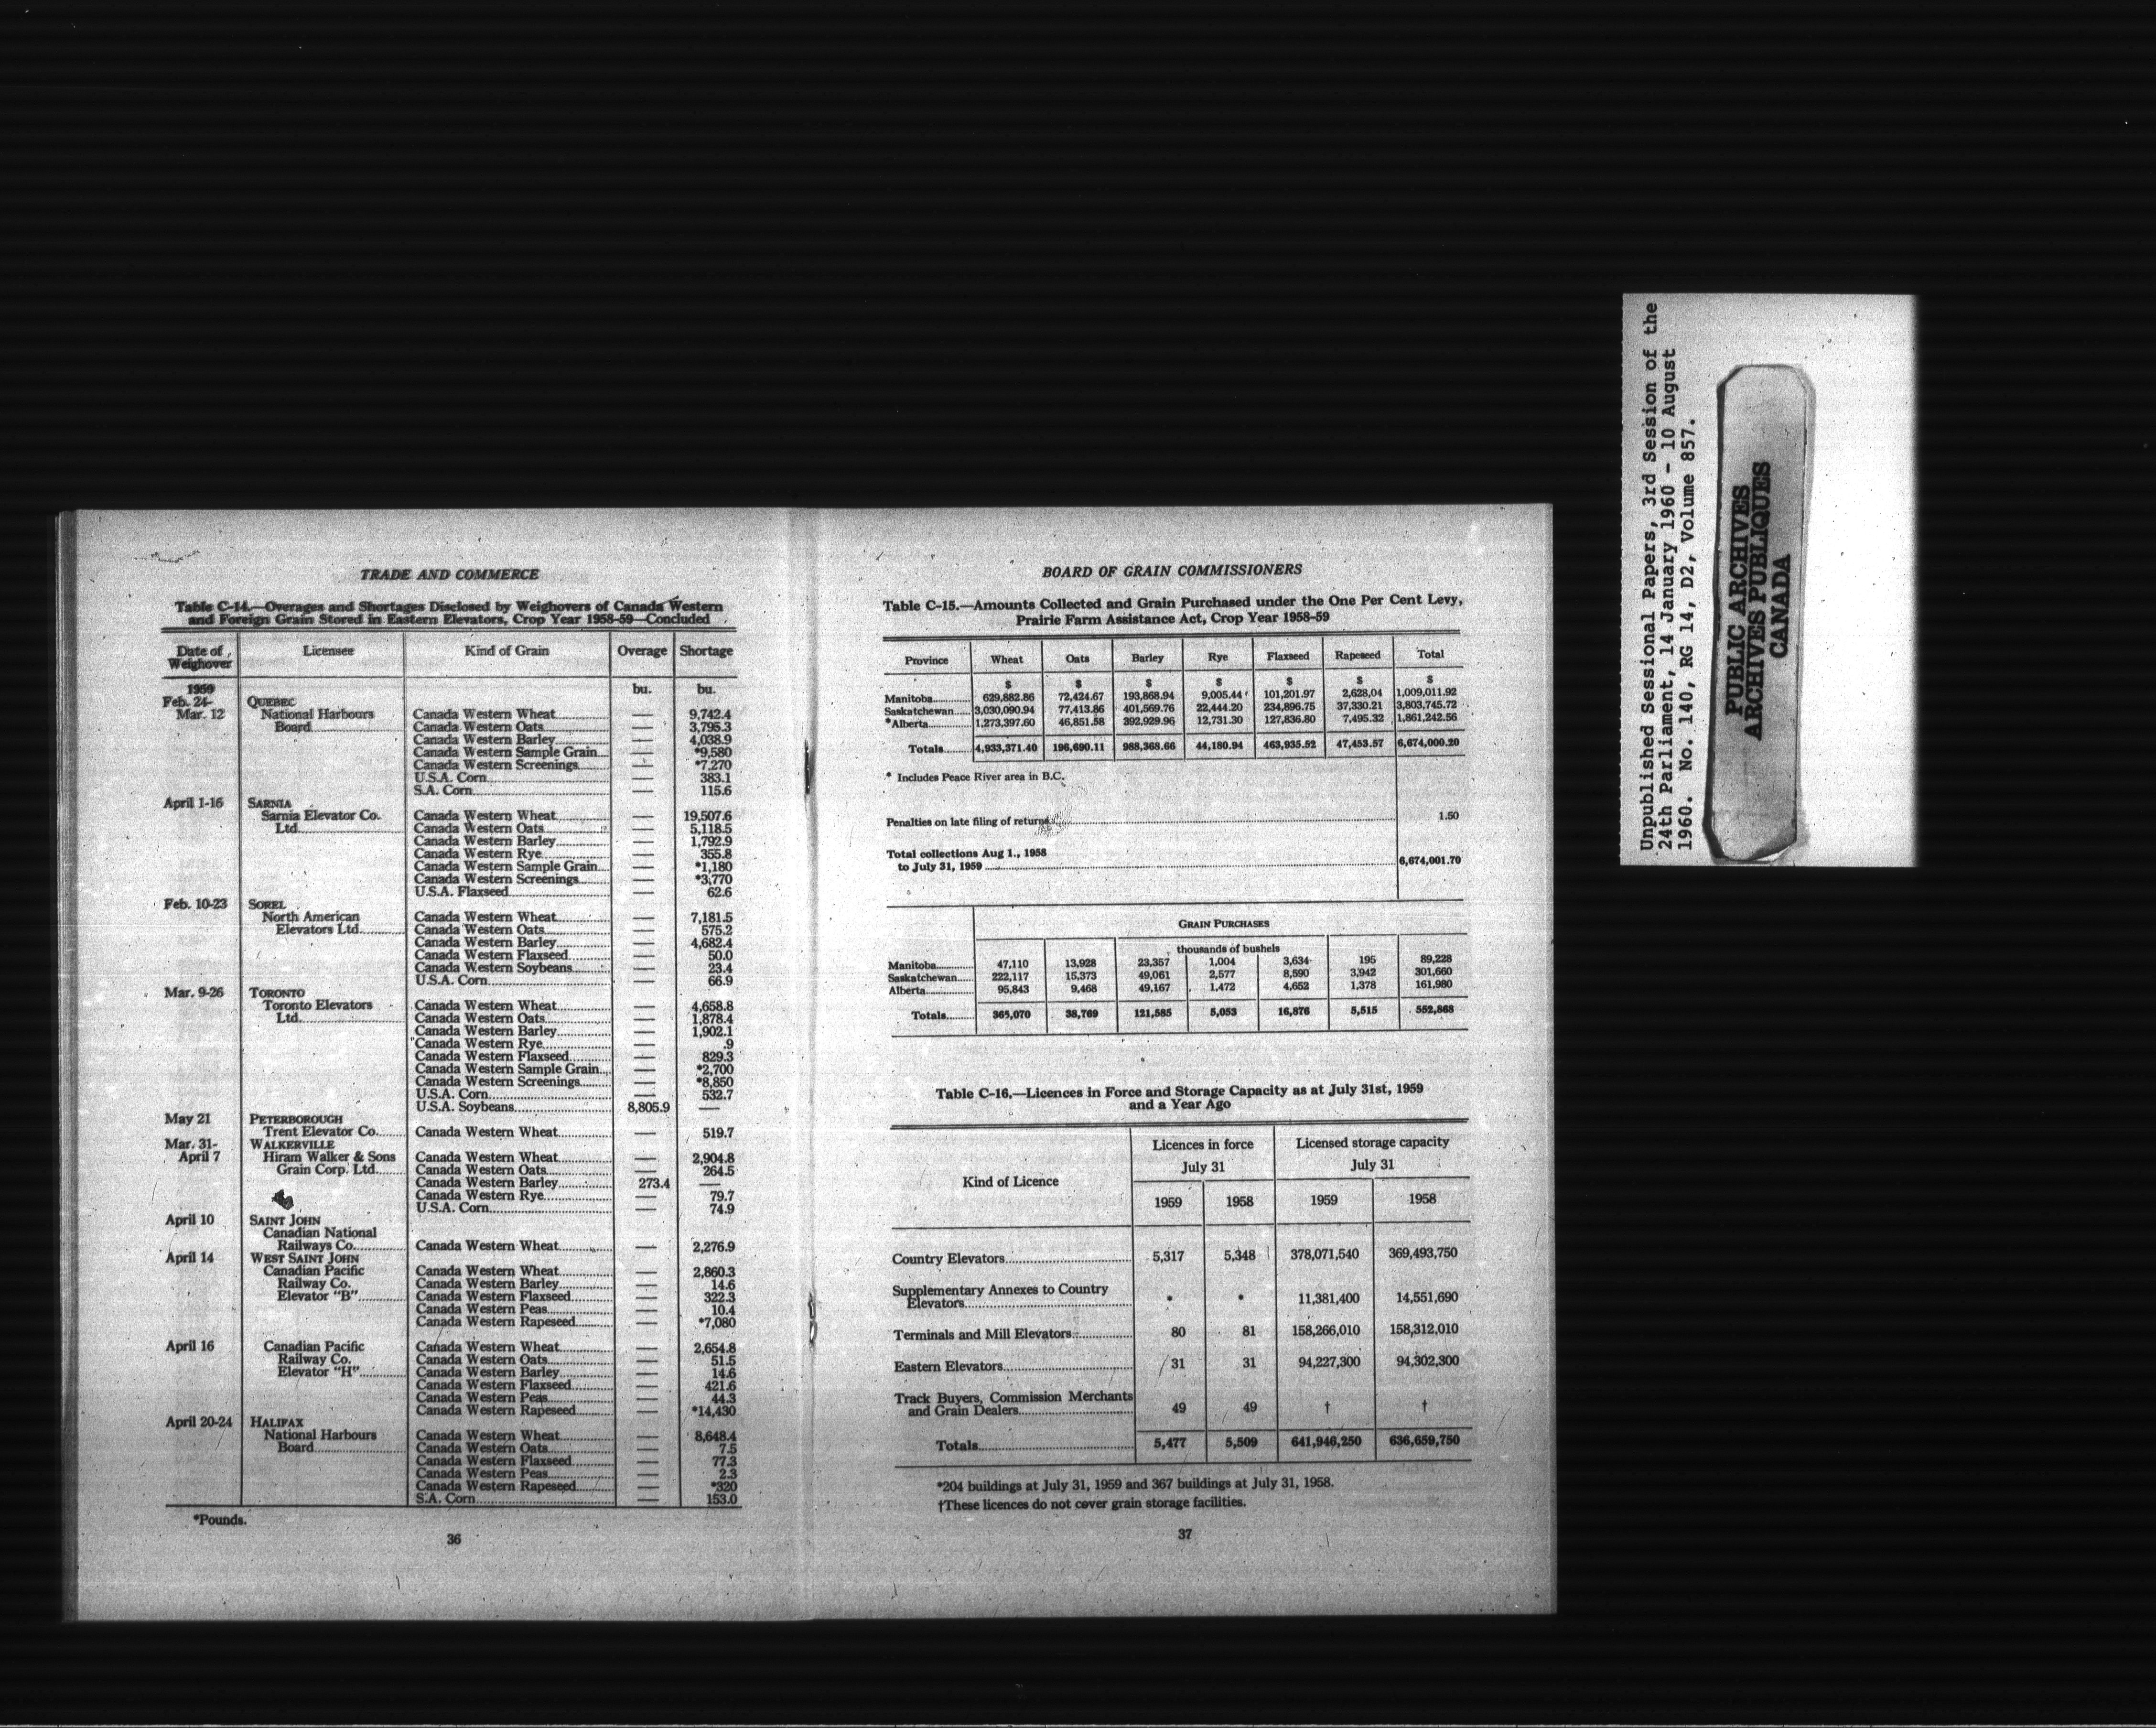 TRADE AND COMMERCE
Table C-14.—Overages and Shortages Disclosed by Weighovers of Canada Western
and Foreign Grain Stored in Eastern Elevators, Crop Year 1958-59—Concluded
Date of Weighover Licensee Kind of Grain Overage Shortage
1959 bu. bu.
Feb. 24- QUEBEC
Mar. 12 National Harbours Canada Western Wheat — 9,742.4
Board Canada Western Oats — 3,795.3
Canada Western Barley — 4,038.9
Canada Western Sample Grain — *9,580
Canada Western Screenings — *7,270
U.S.A. Corn — 383.1
S.A. Corn — 115.6
April 1-16 SARNIA
Sarnia Elevator Co. Canada Western Wheat — 19,507.6
Ltd. Canada Western Oats — 5,118.5
Canada Western Barley — 1,792.9
Canada Western Rye — 355.8
Canada Western Sample Grain — *1,180
Canada Western Screenings — *3,770
U.S.A. Flaxseed — 62.6
Feb. 10-23 SOREL
North American Canada Western Wheat — 7,181.5
Elevators Ltd. Canada Western Oats — 575.2
Canada Western Barley — 4,682.4
Canada Western Flaxseed — 50.0
Canada Western Soybeans — 23.4
U.S.A. Corn — 66.9
Mar. 9-26 TORONTO
Toronto Elevators Canada Western Wheat — 4,658.8
Ltd. Canada Western Oats — 1,878.4
Canada Western Barley — 1,902.1
Canada Western Rye — .9
Canada Western Flaxseed — 829.3
Canada Western Sample Grain — *2,700
Canada Western Screenings — *8,850
U.S.A. Corn — 532.7
U.S.A. Soybeans 8,805.9 —
May 21 PETERBOROUGH
Trent Elevator Co. Canada Western Wheat — 519.7
Mar. 31- WALKERVILLE
April 7 Hiram Walker & Sons Canada Western Wheat — 2,904.8
Grain Corp. Ltd. Canada Western Oats — 264.5
Canada Western Barley 273.4 —
Canada Western Rye — 79.7
U.S.A. Corn — 74.9
April 10 SAINT JOHN
Canadian National
Railways Co. Canada Western Wheat — 2,276.9
April 14 WEST SAINT JOHN
Canadian Pacific Canada Western Wheat — 2,860.3
Railway Co. Canada Western Barley — 14.6
Elevator "B" Canada Western Flaxseed — 322.3
Canada Western Peas — 10.4
Canada Western Rapeseed — *7,080
April 16 Canadian Pacific Canada Western Wheat — 2,654.8
Railway Co. Canada Western Oats — 51.5
Elevator "H" Canada Western Barley — 14.6
Canada Western Flaxseed — 421.6
Canada Western Peas — 44.3
Canada Western Rapeseed — *14,430
April 20-24 HALIFAX
National Harbours Canada Western Wheat — 8,648.4
Board Canada Western Oats — 7.5
Canada Western Flaxseed — 77.3
Canada Western Peas — 2.3
Canada Western Rapeseed — *320
S.A. Corn — 153.0
*Pounds.
36
BOARD OF GRAIN COMMISSIONERS
Table C-15.—Amounts Collected and Grain Purchased under the One Per Cent Levy,
Prairie Farm Assistance Act, Crop Year 1958-59
Province Wheat Oats Barley Rye Flaxseed Rapeseed Total
$ $ $ $ $ $ $
Manitoba 629,882.86 72,424.67 193,868.94 9,005.44 101,201.97 2,628.04 1,009,011.92
Saskatchewan 3,030,090.94 77,413.86 401,569.76 22,444.20 234,896.75 37,330.21 3,803,745.72
*Alberta 1,273,397.60 46,851.58 392,929.96 12,731.30 127,836.80 7,495.32 1,861,242.56
Totals 4,933,371.40 196,690.11 988,368.66 44,180.94 463,935.52 47,453.57 6,674,000.20
* Includes Peace River area in B.C.
Penalties on late filing of returns 1.50
Total collections Aug 1., 1958
to July 31, 1959 6,674,001.70
GRAIN PURCHASES
thousands of bushels
Manitoba 47,110 13,928 23,357 1,004 3,634 195 89,228
Saskatchewan 222,117 15,373 49,061 2,577 8,590 3,942 301,660
Alberta 95,843 9,468 49,167 1,472 4,652 1,378 161,980
Totals 365,070 38,769 121,585 5,053 16,876 5,515 552,868
Table C-16.—Licences in Force and Storage Capacity as at July 31st, 1959
and a Year Ago
Kind of Licence Licences in force Licensed storage capacity
July 31 July 31
1959 1958 1959 1958
Country Elevators 5,317 5,348 378,071,540 369,493,750
Supplementary Annexes to Country
Elevators * * 11,381,400 14,551,690
Terminals and Mill Elevators 80 81 158,266,010 158,312,010
Eastern Elevators 31 31 94,227,300 94,302,300
Track Buyers, Commission Merchants
and Grain Dealers 49 49 † †
Totals 5,477 5,509 641,946,250 636,659,750
*204 buildings at July 31, 1959 and 367 buildings at July 31, 1958.
†These licences do not cover grain storage facilities.
37
Unpublished Sessional Papers, 3rd Session of the
24th Parliament, 14 January 1960 - 10 August
1960. No. 140, RG 14, D2, Volume 857.
PUBLIC ARCHIVES
ARCHIVES PUBLIQUES
CANADA